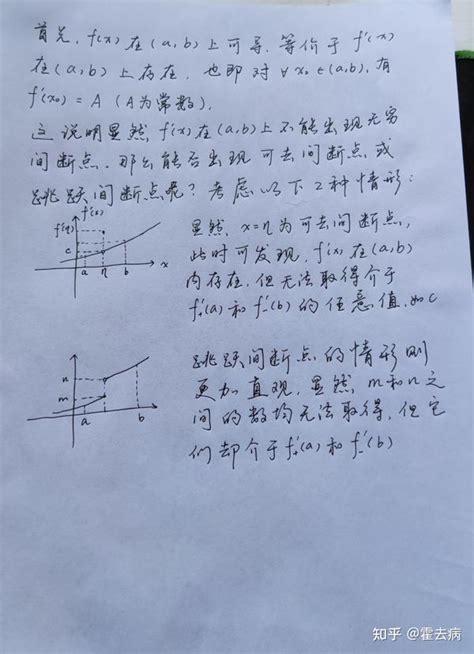 首先, f(x) 在 (a,b) 上可导, 等价于 f'(x)
在 (a,b) 上存在, 也即 对 ∀ x₀ ∈(a,b), 有
f'(x₀) = A (A为常数),
这说明显然, f'(x) 在 (a,b) 上不能出现无穷
间断点. 那么能否出现 可去间断点 或
跳跃间断点呢? 考虑以下2种情形:
f'(x)
f'(η)
c
a η b x
显然, x=η 为可去间断点,
此时可发现, f'(x) 在 (a,b)
内存在, 但无法取得介于
f'₊(a) 和 f'₋(b) 的任意值, 如 c
n
m
a b
跳跃间断点的情形则
更加直观, 显然, m和n之
间的数均无法取得, 但它
们却介于 f'₊(a) 和 f'₋(b)
知乎 @霍去病